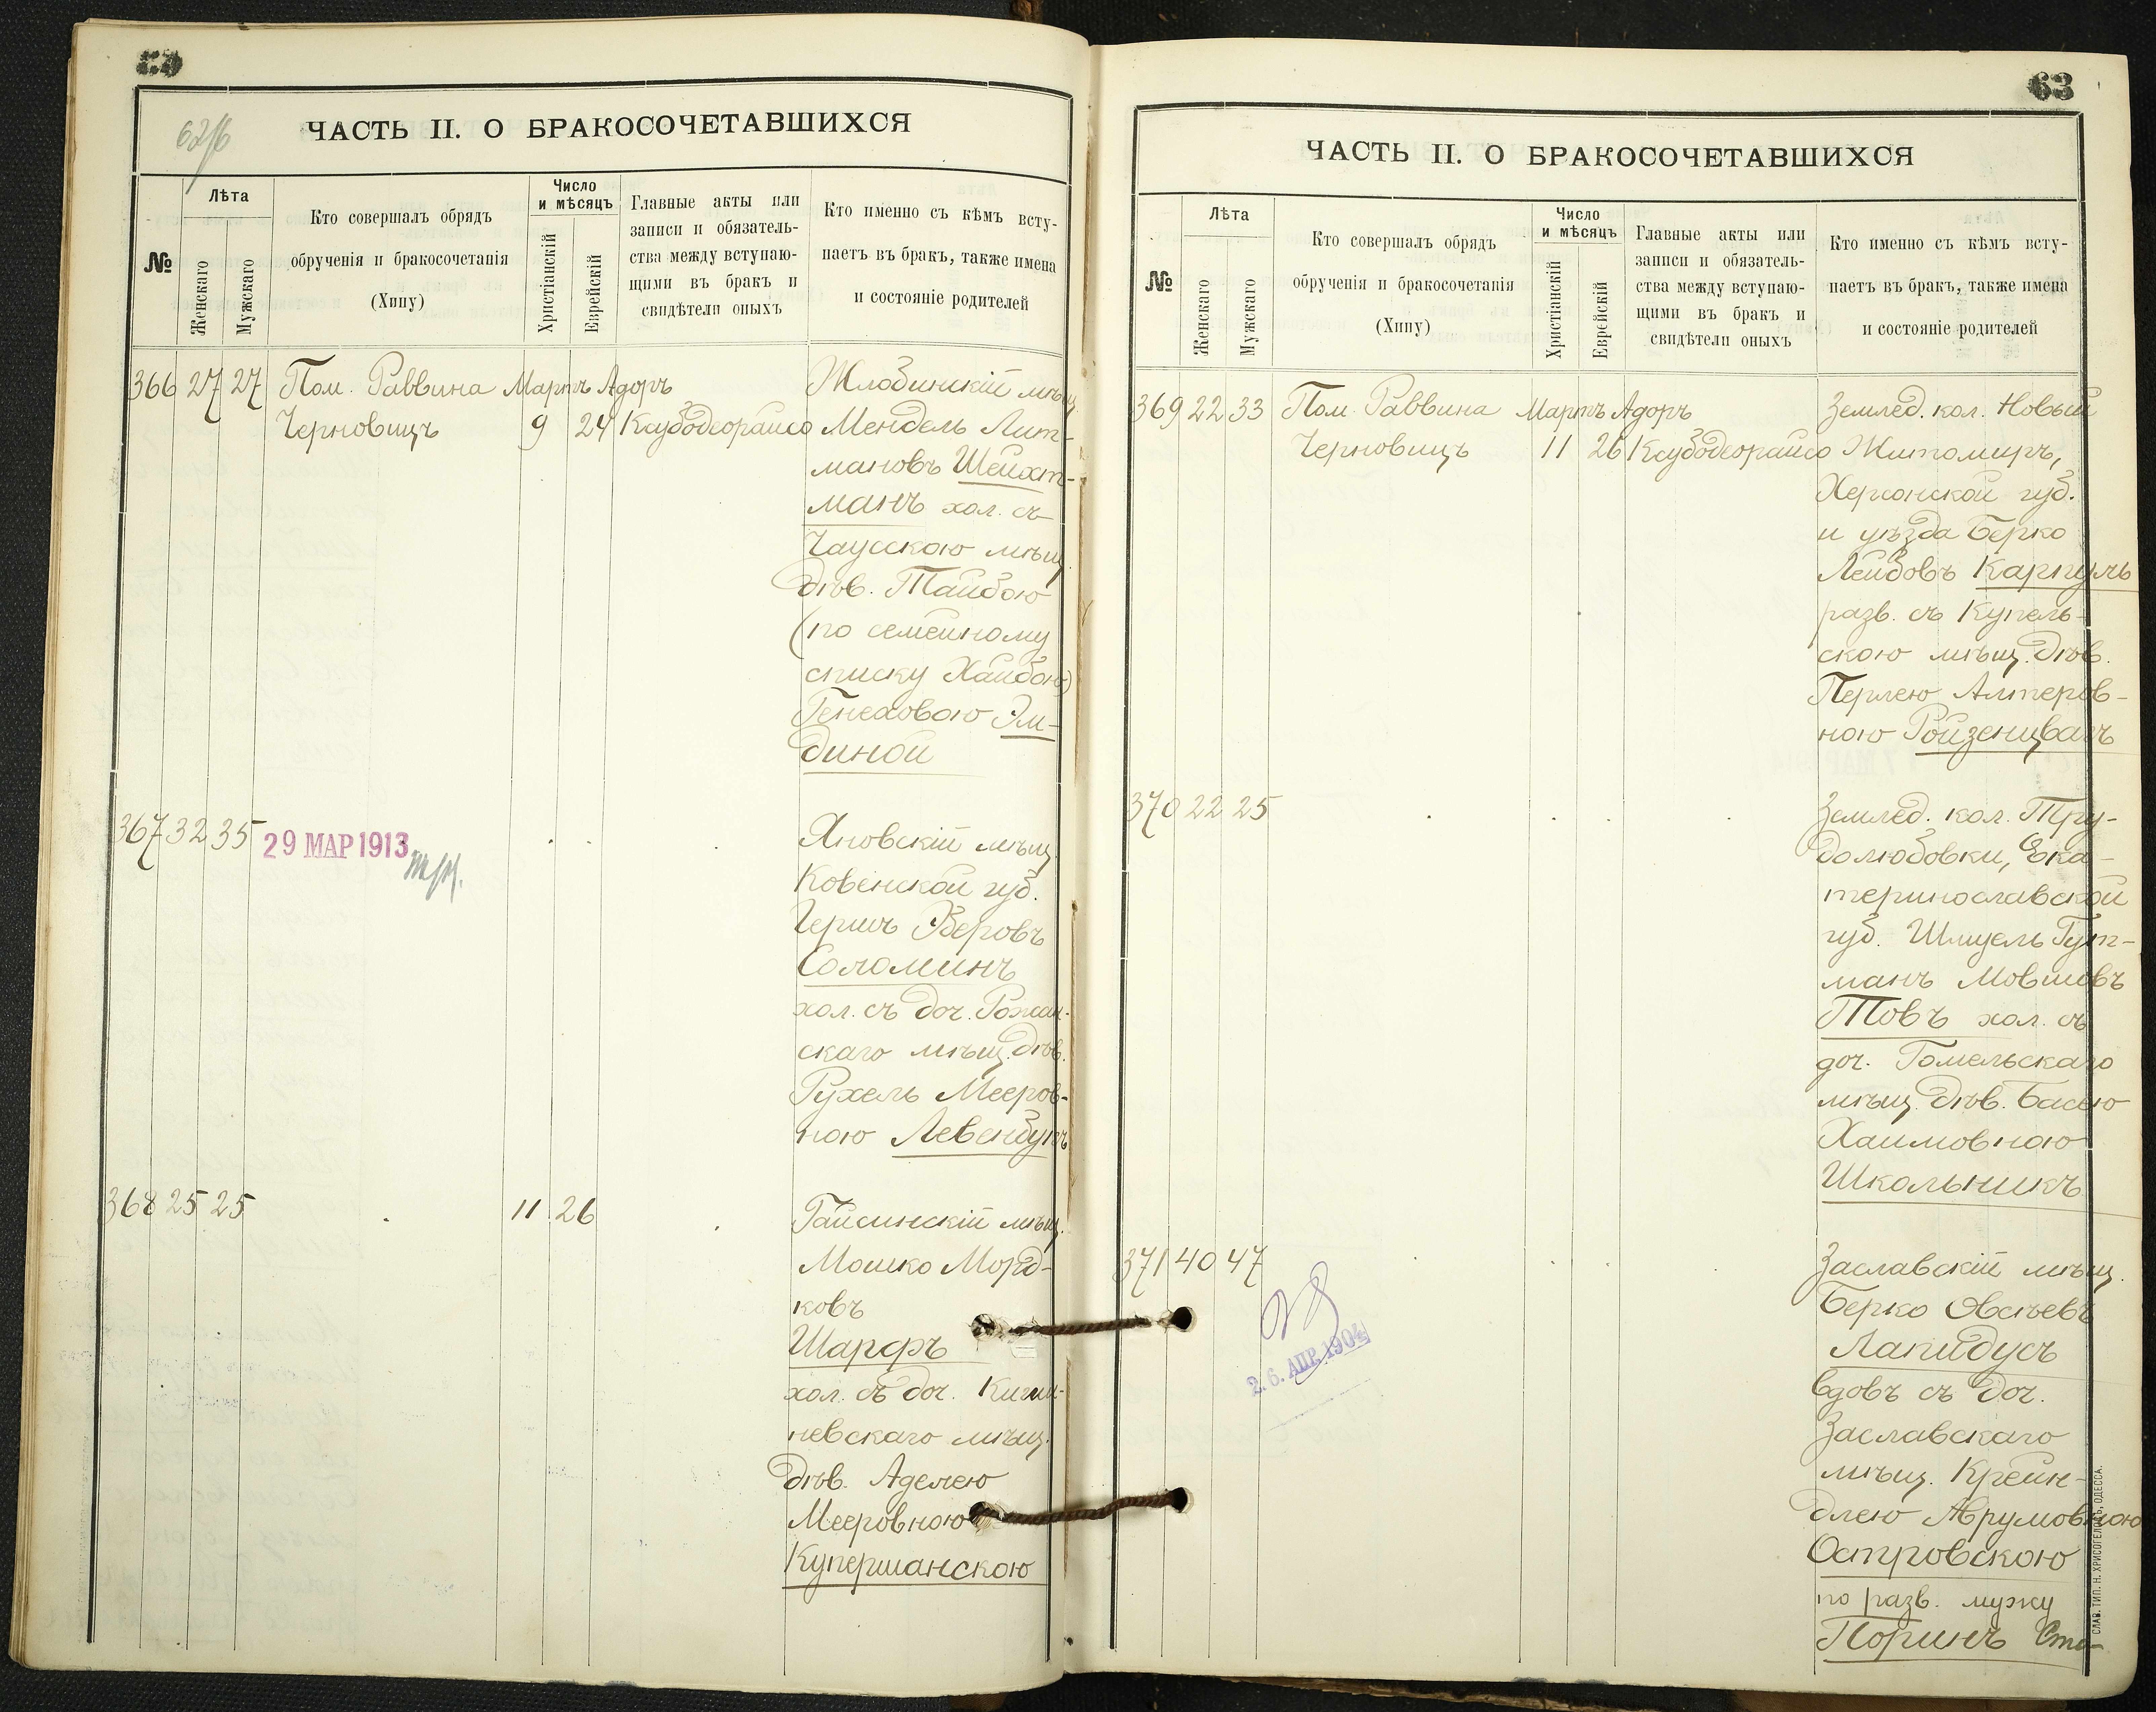 62/б
ЧАСТЬ II. О БРАКОСОЧЕТАВШИХСЯ
№
Лѣта
Женскаго
Мужскаго
Кто совершалъ обрядъ
обрученія и бракосочетанія
(Хипу)
Число
и мѣсяцъ
Христіанскій
Еврейскій
Главные акты или
записи и обязатель-
ства между вступаю-
щими въ бракъ и
свидѣтели оныхъ
Кто именно съ кѣмъ всту-
паетъ въ бракъ, также имена
и состояніе родителей
366 27 27 Пом. Раввина Мартъ Адоръ
Черновицъ 9 24 Ксубодеорайсо
Жлобинскій мѣщ.
Мендель Лит-
мановъ Шейхт-
манъ хол. съ
Чаусскою мѣщ.
дѣв. Тайбою
(по семейному
списку Хайбою)
Генеховою Эл-
диной
367 32 35
29 МАР 1913
Яновскій мѣщ.
Ковенской губ.
Гершъ Беровъ
Соломинъ
хол. съ доч. Рожан-
скаго мѣщ. дѣв.
Рухель Мееров-
ною Левенбукъ
368 25 25 11 26
Гайсинскій мѣщ.
Мошко Морд-
ковъ
Шарфъ
хол. съ доч. Киши-
невскаго мѣщ.
дѣв. Аделею
Мееровною
Купершанскою
63
ЧАСТЬ II. О БРАКОСОЧЕТАВШИХСЯ
№
Лѣта
Женскаго
Мужскаго
Кто совершалъ обрядъ
обрученія и бракосочетанія
(Хипу)
Число
и мѣсяцъ
Христіанскій
Еврейскій
Главные акты или
записи и обязатель-
ства между вступаю-
щими въ бракъ и
свидѣтели оныхъ
Кто именно съ кѣмъ всту-
паетъ въ бракъ, также имена
и состояніе родителей
369 22 33 Пом. Раввина Мартъ Адоръ
Черновицъ 11 26 Ксубодеорайсо
Землед. кол. Новый
Житомиръ,
Херсонской губ.
и уѣзда Берко
Лейбовъ Карпуль
разв. съ Купель-
скою мѣщ. дѣв.
Перлею Алтеров-
ною Ройзенцвагъ
370 22 25
Землед. кол. Тру-
долюбовки, Ека-
теринославской
губ. Шмуель Гут-
манъ Мовшовъ
Товъ хол. съ
доч. Гомельскаго
мѣщ. дѣв. Басею
Хаимовною
Школьникъ
371 40 47
26. АПР. 1904
Заславскій мѣщ.
Берко Овсѣевъ
Лапидусъ
вдовъ съ доч.
Заславскаго
мѣщ. Крейн-
длею Аврумовною
Островскою
по разв. мужу
Поринъ Сто-
СЛАВ. ТИП. Н. ХРИСОГЕЛОСЪ, ОДЕССА.